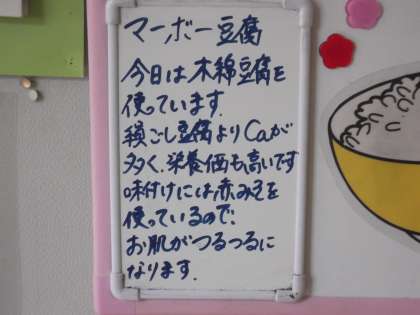 マーボー豆腐
今日は木綿豆腐を
使っています.
絹ごし豆腐よりCaが
多く、栄養価も高いです
味付けには赤みそを
使っているので、
お肌がつるつるに
なります.